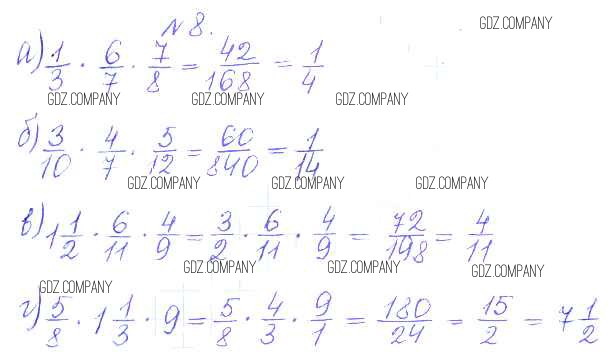 N 8.
GDZ.COMPANY
а) 1/3 · 6/7 · 7/8 = 42/168 = 1/4
GDZ.COMPANY GDZ.COMPANY GDZ.COMPANY
б) 3/10 · 4/7 · 5/12 = 60/840 = 1/14
GDZ.COMPANY GDZ.COMPANY GDZ.COMPANY
в) 1 1/2 · 6/11 · 4/9 = 3/2 · 6/11 · 4/9 = 72/198 = 4/11
GDZ.COMPANY GDZ.COMPANY GDZ.COMPANY
GDZ.COMPANY
г) 5/8 · 1 1/3 · 9 = 5/8 · 4/3 · 9/1 = 180/24 = 15/2 = 7 1/2